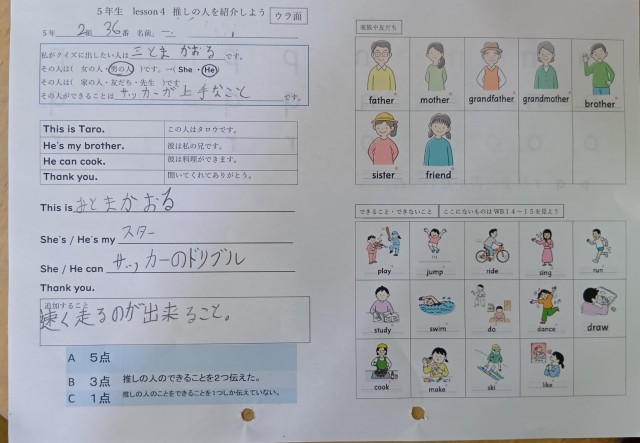 5年生 lesson 4 推しの人を紹介しよう ウラ面
5年 2組 36番 名前
私がクイズに出したい人は 三とま かおる です。
その人は( 女の人・男の人 )です。→( She ・ He )
その人は( 家の人・友だち・先生 )です
その人ができることは サッカーが上手なこと です。
This is Taro. この人はタロウです。
He's my brother. 彼は私の兄です。
He can cook. 彼は料理ができます。
Thank you. 聞いてくれてありがとう。
This is みとまかおる
She's / He's my スター
She / He can サッカーのドリブル
Thank you.
追加すること
速く走るのが出来ること。
A 5点
B 3点 推しの人のできることを2つ伝えた。
C 1点 推しの人のことをできることを1つしか伝えていない。
家族や友だち
father mother grandfather grandmother brother
sister friend
できること・できないこと ここにないものはWB14~15を見よう
play jump ride sing run
study swim do dance draw
cook make ski like